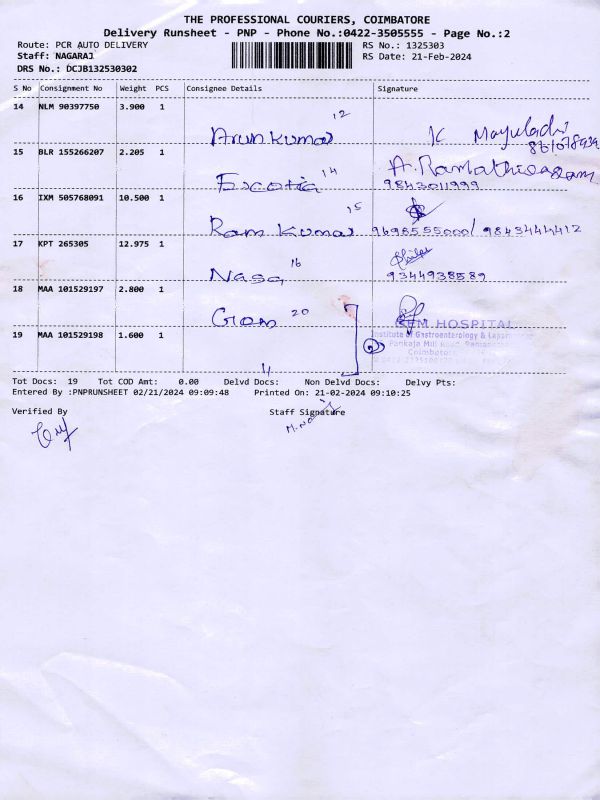 THE PROFESSIONAL COURIERS, COIMBATORE
Delivery Runsheet - PNP - Phone No.:0422-3505555 - Page No.:2
Route: PCR AUTO DELIVERY RS No.: 1325303
Staff: NAGARAJ RS Date: 21-Feb-2024
DRS No.: DCJB132530302
S No Consignment No Weight PCS Consignee Details Signature
14 NLM 90397750 3.900 1
12
Arun Kumar K
15 BLR 155266207 2.205 1
14
Escotia 9843011999
16 IXM 505768091 10.500 1
15
Ram Kumar 9698555000/ 9843444412
17 KPT 265305 12.975 1
16
Nasa 9344938589
18 MAA 101529197 2.800 1
20
Gem
GEM HOSPITAL
19 MAA 101529198 1.600 1 Institute of Gastroenterology &
Pankaja Mill Road,
Coimbatore
Tot Docs: 19 Tot COD Amt: 0.00 Delvd Docs: Non Delvd Docs: Delvy Pts:
Entered By :PNPRUNSHEET 02/21/2024 09:09:48 Printed On: 21-02-2024 09:10:25
Verified By Staff Signature